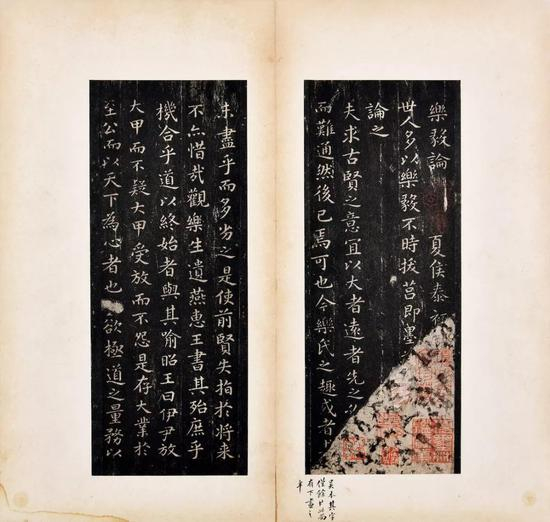 樂毅論 夏侯泰
世人多以樂毅不時拔莒即墨
論之
夫求古賢之意宜以大者遠者先之
而難通然後已焉可也今樂氏之趣或者
未盡乎而多劣之是使前賢失指於將来
不亦惜哉觀樂生遺燕惠王書其殆庶乎
機合乎道以終始者與其喻昭王曰伊尹放
大甲而不疑大甲受放而不怨是存大業於
至公而以天下為心者也欲極道之量務以
吴本其字
僅餘
半